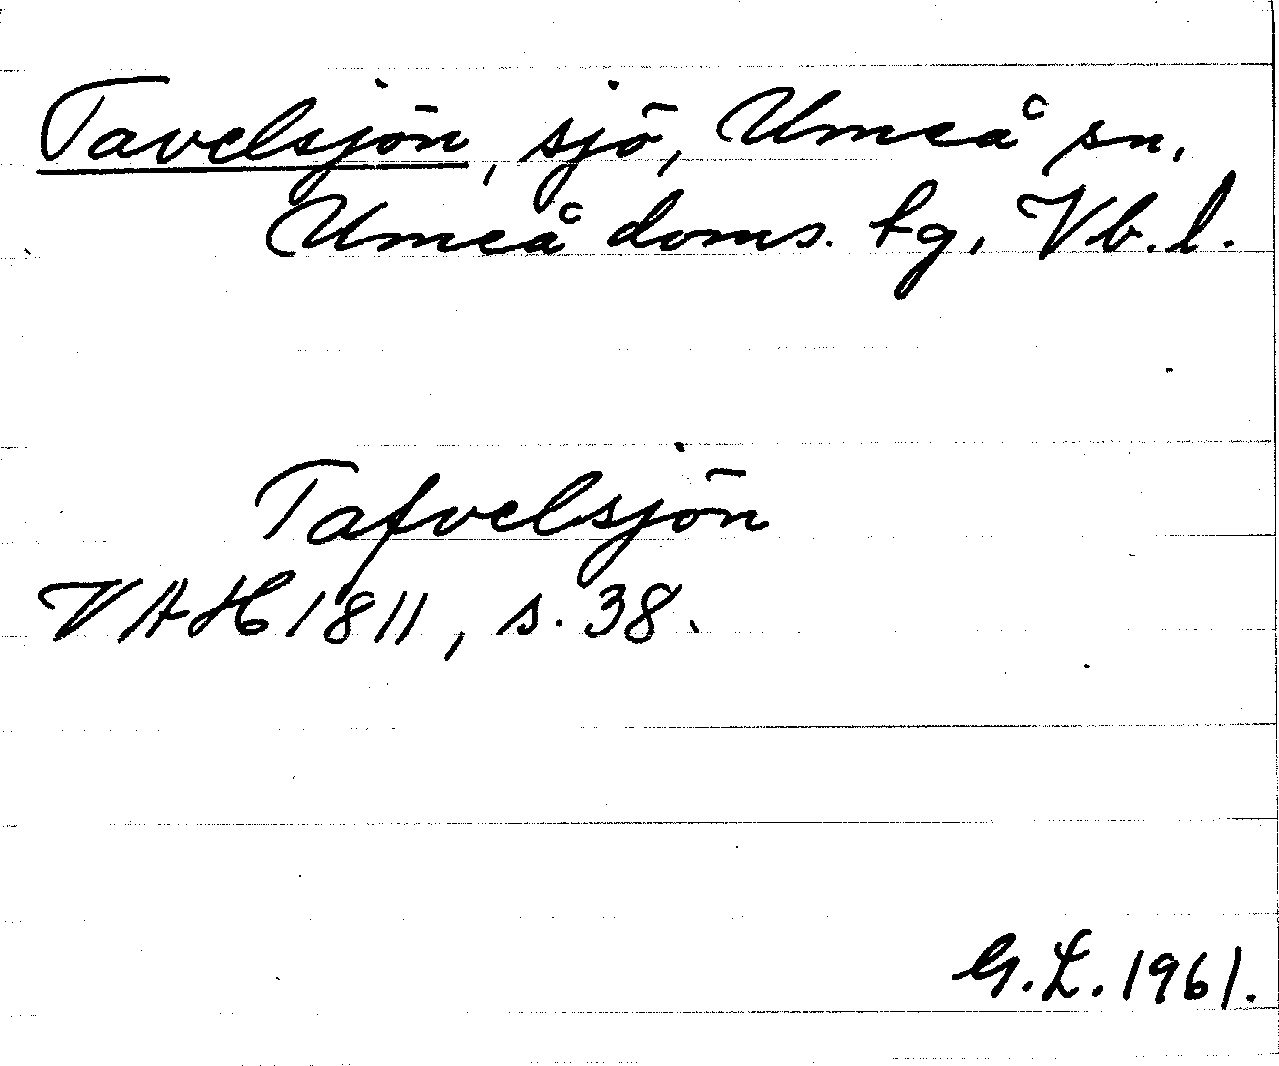 Tavelsjön, sjö, Umeå sn,
Umeå doms. tg, Vb. l.
Tafvelsjön
VAH 1811, s. 38.
G. L. 1961.